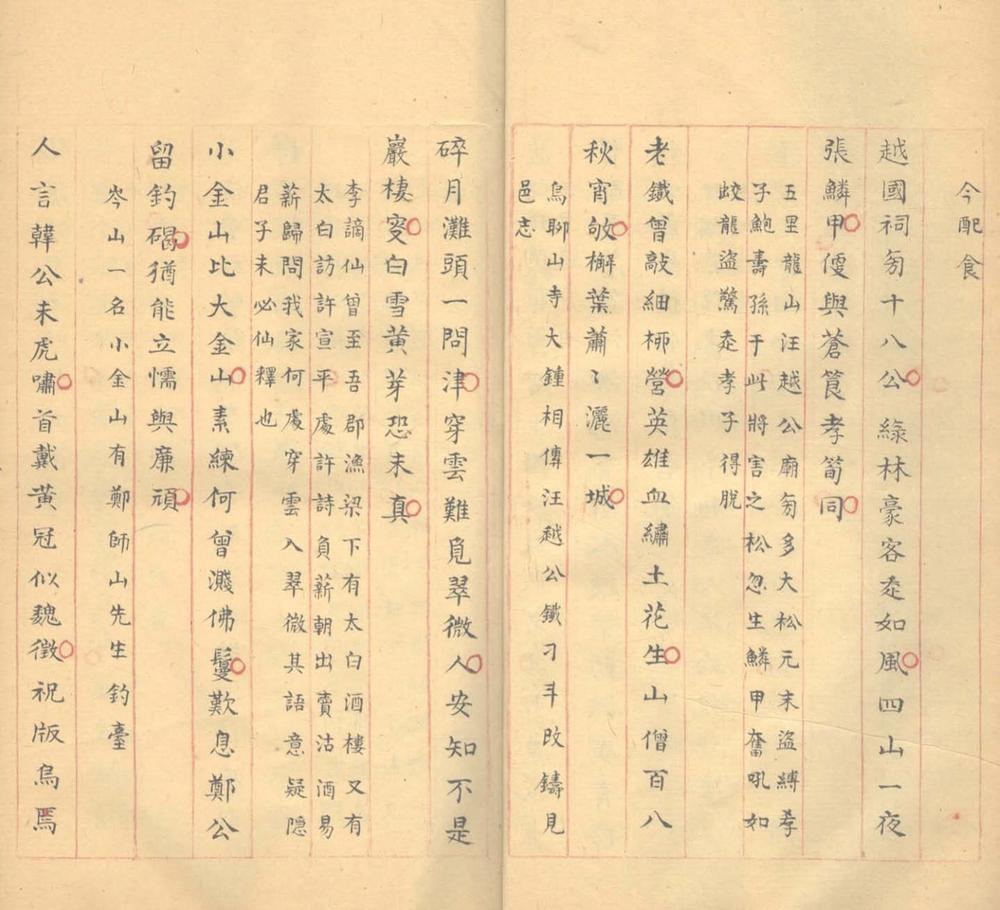 今配食
越國祠旁十八公緑林豪客來如風四山一夜
張鱗甲便與蒼筤孝筍同
五里龍山汪越公廟旁多大松元末盜縛孝
子鮑壽孫于此將害之松忽生鱗甲奮吼如
蛟龍盜驚走孝子得脫
老鐵曾敲細栁營英雄血繡土花生山僧百八
秋宵敂檞葉蕭〻灑一城
烏聊山寺大鍾相傳汪越公鐵刁斗改鑄見
邑志
碎月灘頭一問津穿雲難覓翠微人安知不是
巖棲叟白雪黄芽恐未真
李謫仙曾至吾郡漁梁下有太白酒樓又有
太白訪許宣平處許詩負薪朝出賣沽酒易
薪歸問我家何處穿雲入翠微其語意疑隱
君子未必仙釋也
小金山比大金山素練何曾濺佛鬘歎息鄭公
留釣碣猶能立懦與廉頑
岑山一名小金山有鄭師山先生釣臺
人言韓公未虎嘯首戴黄冠似魏徵祝版烏焉